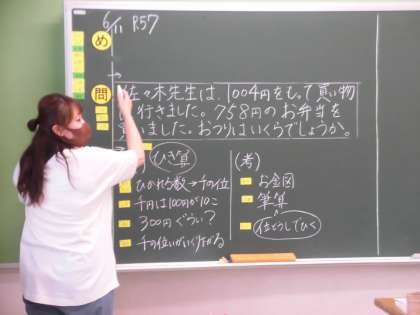 6/11 P.57
め
問
佐々木先生は、1004円をもって買い物
に行きました。758円のお弁当を
買いました。おつりはいくらでしょうか。
ひき算
ひかれる数→千の位
千円は100円が10こ
300円ぐらい?
千の位から
(考)
お金図
筆算
位どうしでひく